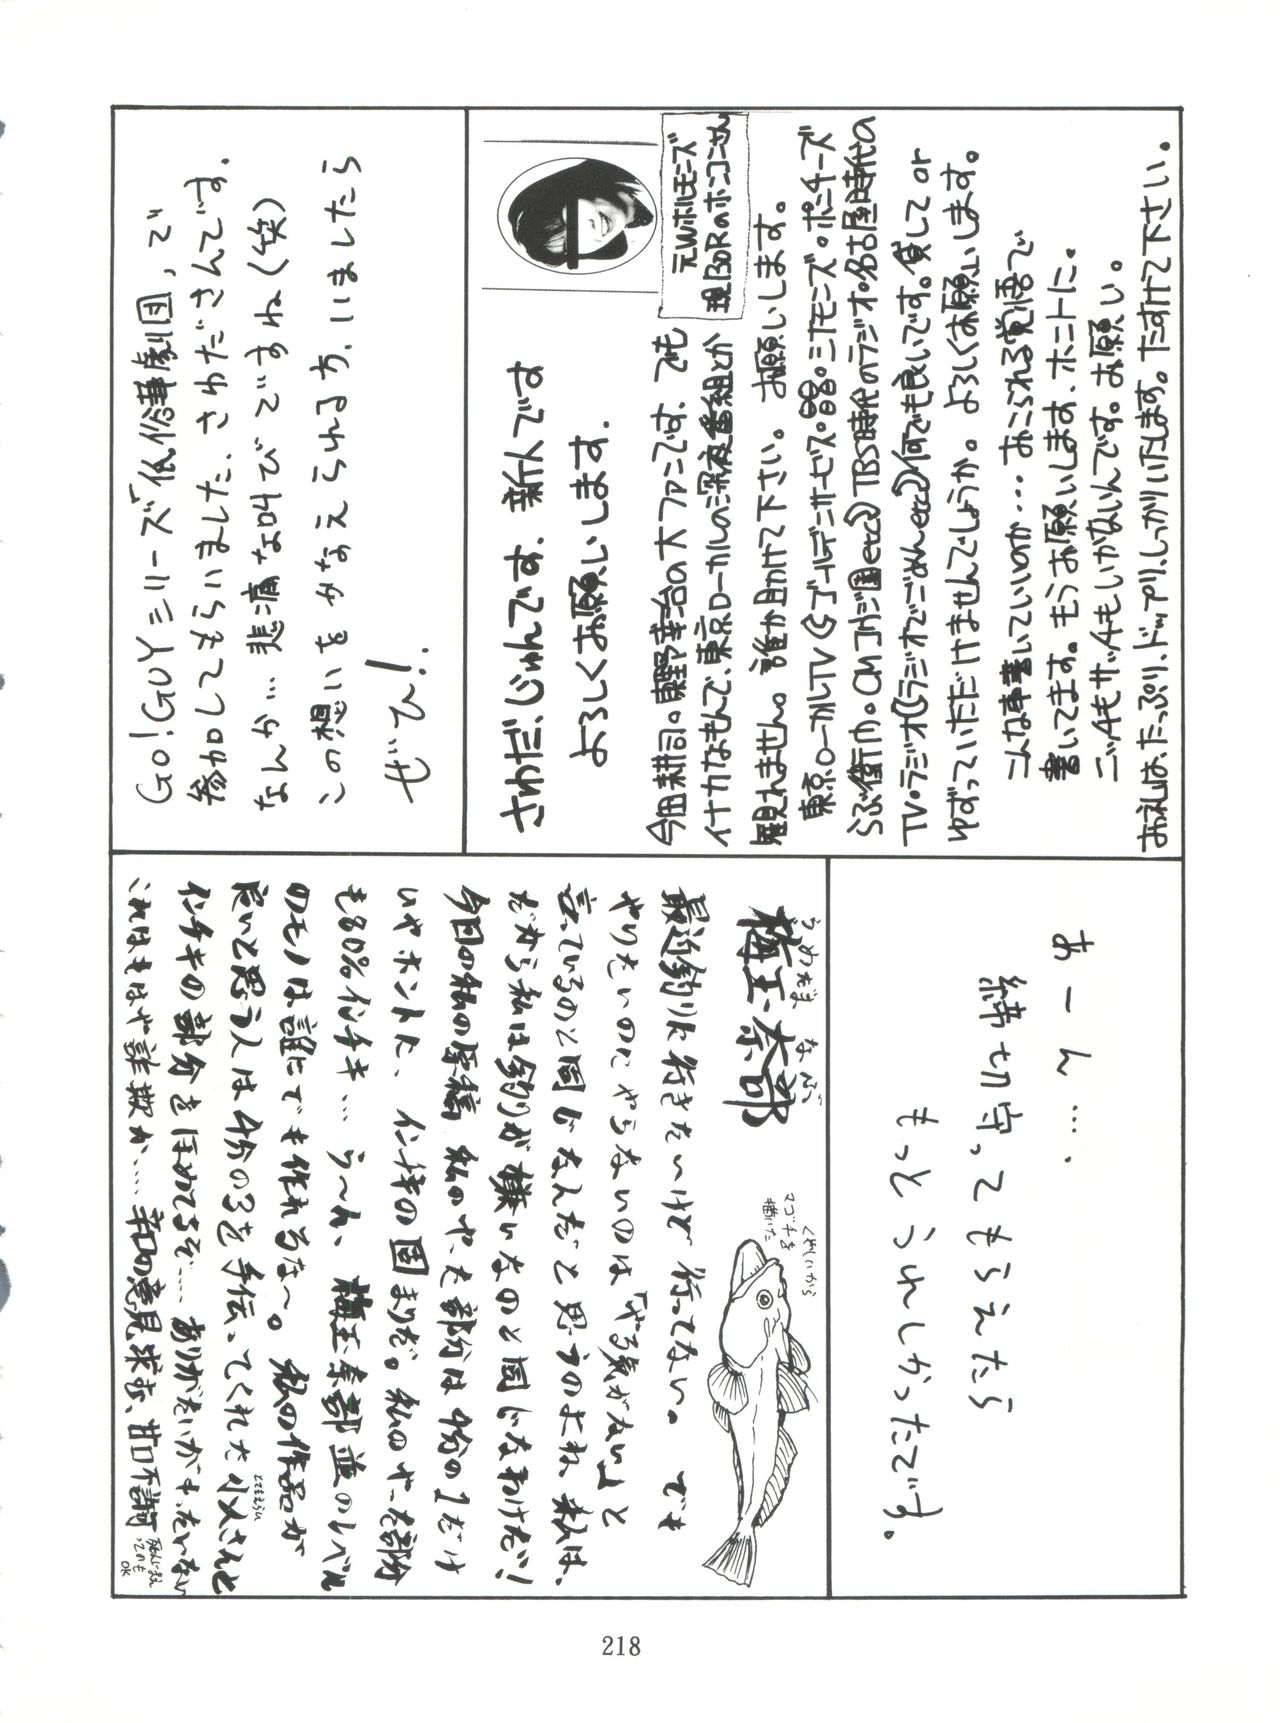 さわだ、じゅんです、新人です
よろしくお願いします。
元Wホルモンズ
現130Rのホンコンさん
今田耕司。東野幸治の大ファンです、でも
イナカなもんで、東京ローカルの深夜番組とか
観れません。誰か助けて下さい。お願いします。
東京ローカルTV
TV・ラジオ(ラジオでごめんetc)何でも良いです。貸してor
ゆずっていただけませんでしょうか。よろしくお願いします。
こんな事書いていいのか…おこられる覚悟で
書いてます。もうお願いします、ホントに。
ニッチもサッチもいかないんです。お願い。
お礼は、たっぷり、ドップリ、しっかりいたします。たすけて下さい。
Go!GUYシリーズ「低俗華劇団」で
参加してもらいました、さわださんです。
なんか…悲痛な叫びですね(笑)
この想いをかなえられる方、いましたら
ぜひ!
あーん…。
締切守ってもらえたら
もっとうれしかったてず。
うめだま なぶ
梅玉・奈部
くやしいから
マゴチを
描いた
最近釣りに行きたいけど行ってない。でも
やりたいのにやらないのは「やる気がない」と
言っているのと同じなんだと思うのよね、私は、
だから私は釣りが嫌いなのと同じなわけだ!
今回の私の原稿、私のやった部分は4分の1だけ
いやホントに、インチキの固まりだ。私のやった部分
も80%インチキ…う〜ん、梅玉奈部並のレベル
のモノは誰にでも作れるな〜。私の作品が
良いと思う人は4分の3を手伝ってくれた
インチキの部分をほめてるぞ…ありがたいがもったいない
これはもはや詐欺か……辛口の意見求む、甘口不許可
OK
218